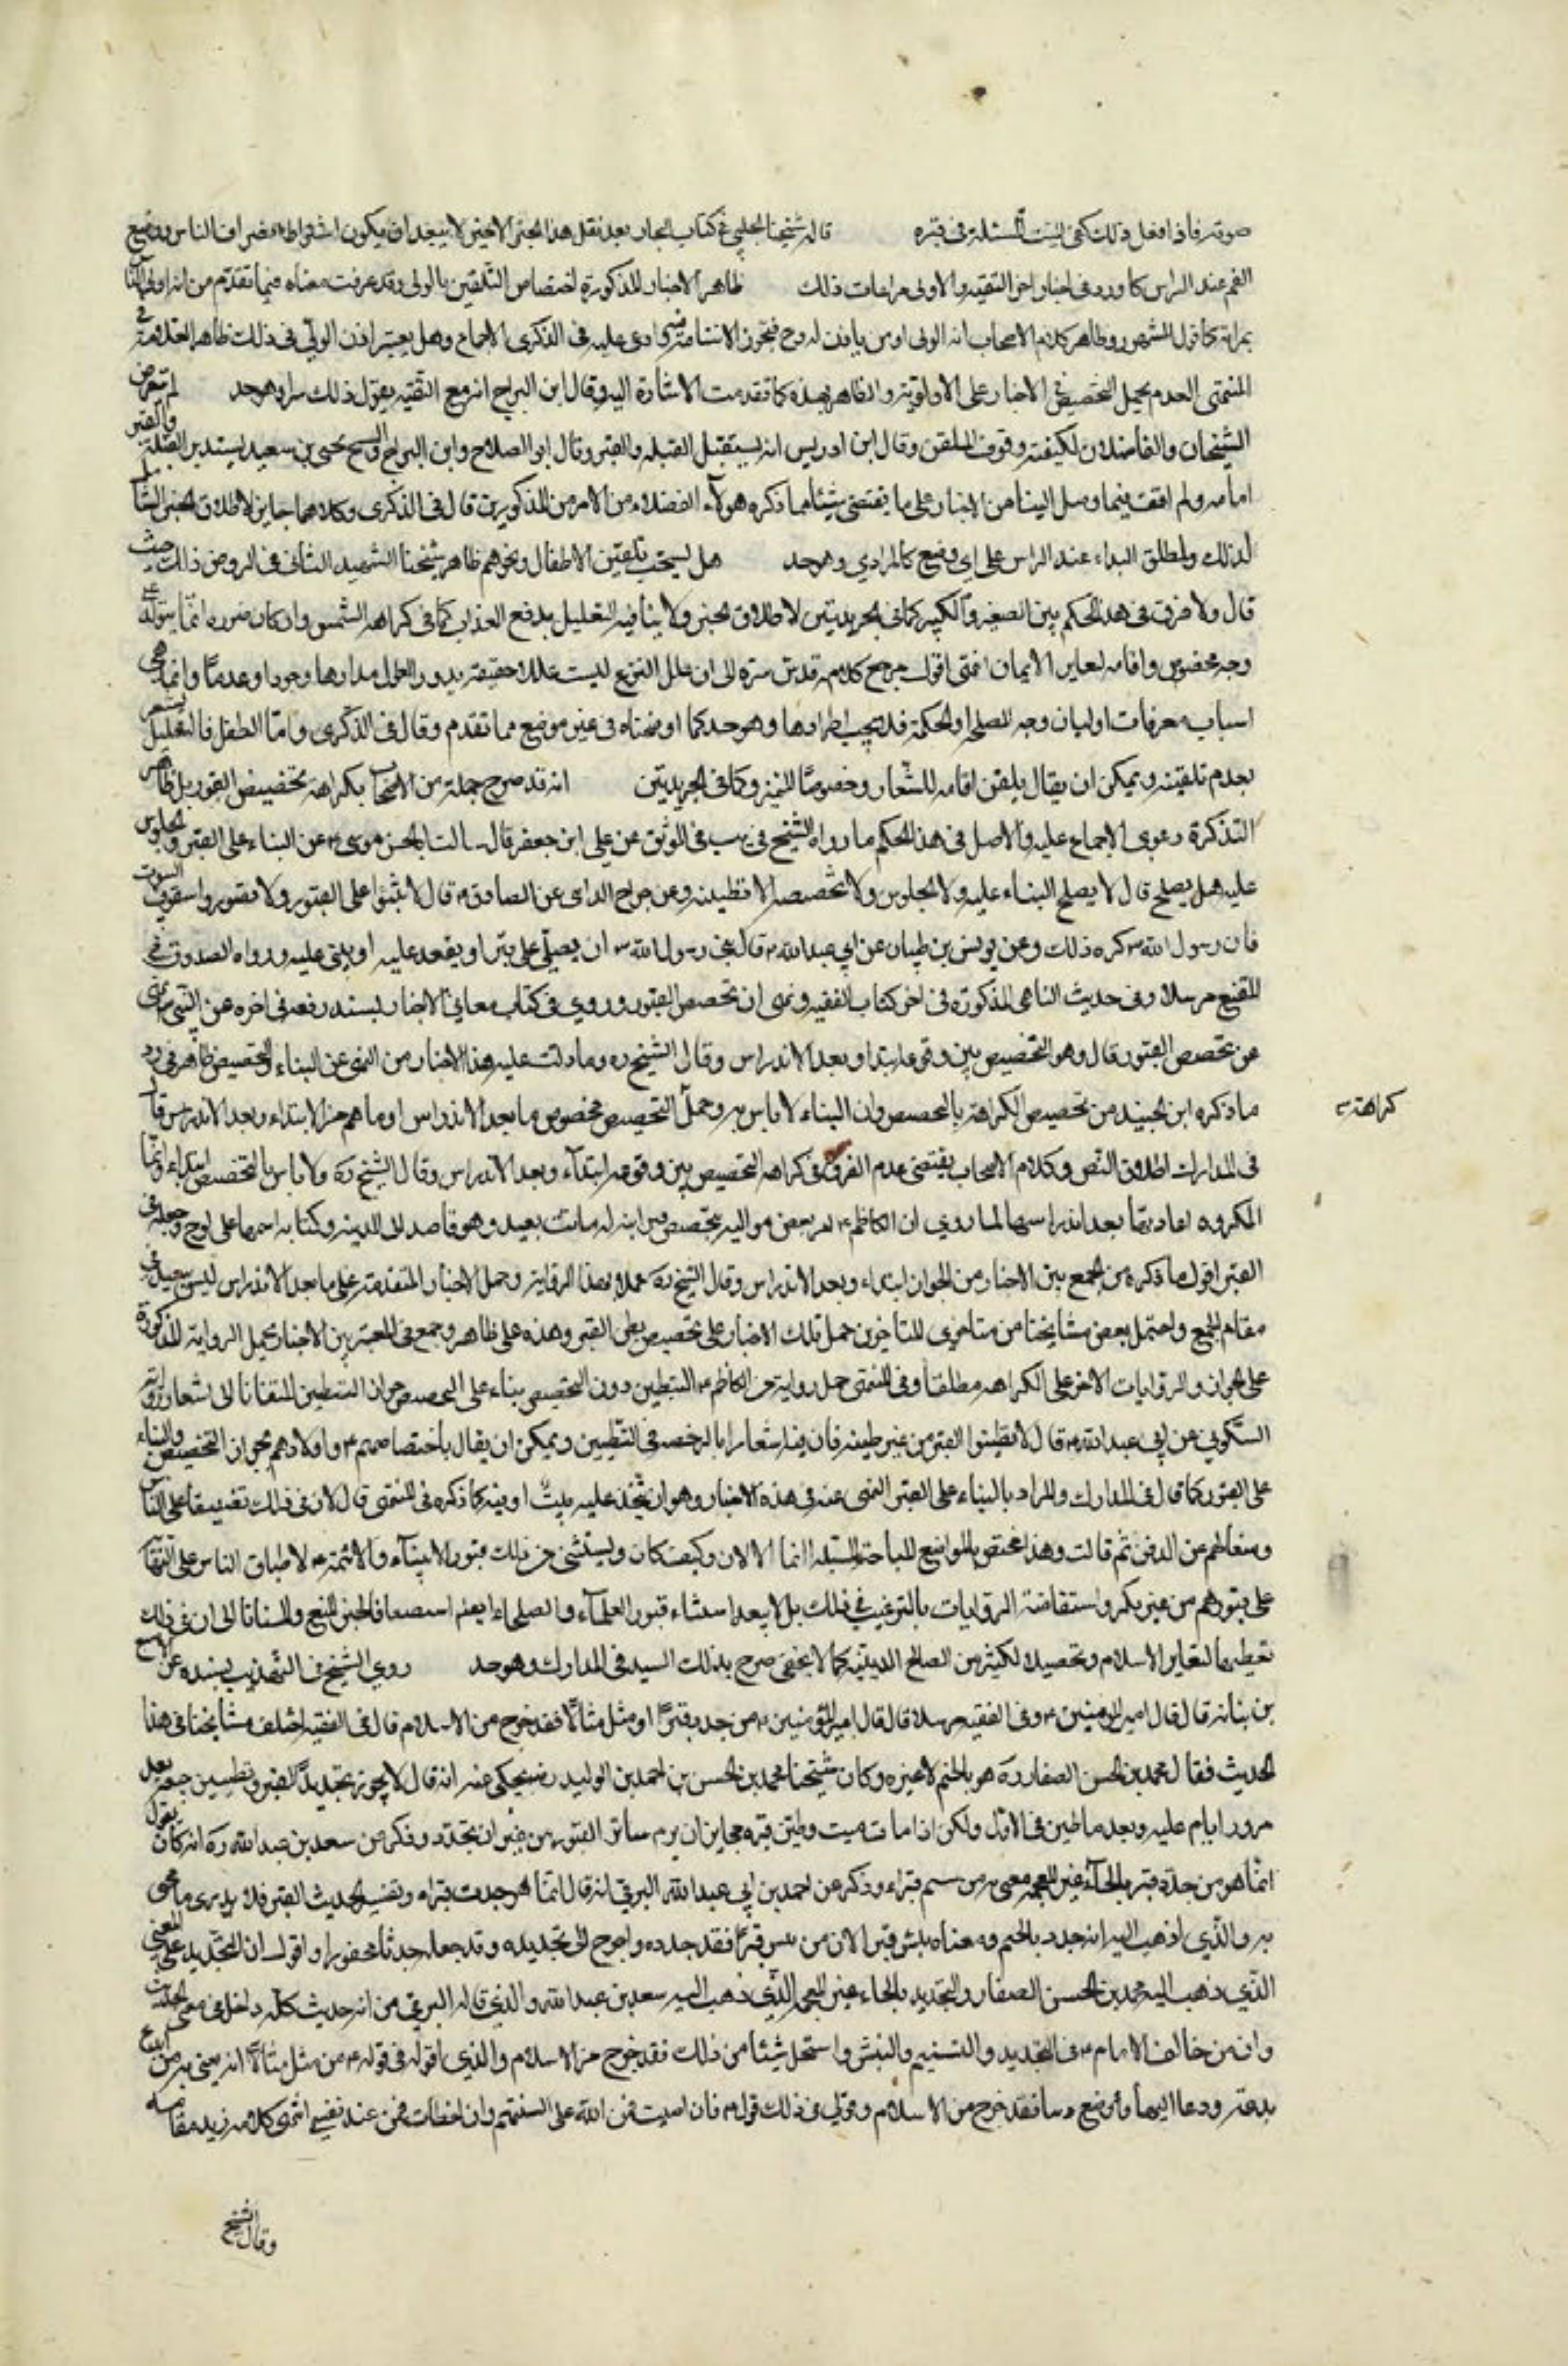 صوته فاذا فعل ذلك كفى الميت المسئلة فى قبره قال شيخنا المجلسي في كتاب البحار بعد نقل هذا الخبر الاخير لا يبعد ان يكون اشتراط انصراف الناس ووضع
الفم عند الراس كما ورد فى اخبار اخر للتقية والاولى مراعات ذلك ظاهر الاخبار المذكورة اختصاص التلقين بالولى وقد عرفت معناه فيما تقدم من انه اولى الناس
بميراثه كما قول المشهور وظاهر كلام الاصحاب انه الولى او من يأذن له وادعى عليه فى الذكرى الاجماع وهل يعتبر اذن الولي فى ذلك ظاهر العلامة في
المنتهى العدم بحمل التخصيص في الاخبار على الاولوية والظاهر بعده كما تقدمت الاشارة اليه وقال ابن البراج انه مع التقية يقول ذلك سرا وهو جيد لم يتعرض
الشيخان والفاضلان لكيفية وقوف الملقن وقال ابن ادريس انه يستقبل القبلة والقبر وقال ابو الصلاح وابن البراج والشيخ يحيى بن سعيد يستدبر القبلة والقبر
امامه ولم اقف فيما وصل الينا من الاخبار على ما يقتضى شيئا مما ذكره هولاء الفضلاء من الامرين المذكورين قال فى الذكرى وكلاهما جايز لاطلاق الخبر الشامل
لذلك ولمطلق النداء عند الراس على اي وضع كان المرادي وهو جيد هل يستحب تلقين الاطفال ونحوهم ظاهر شيخنا الشهيد الثانى فى الروض ذلك حيث
قال ولا فرق فى هذا الحكم بين الصغير والكبير كما فى الجريدتين لاطلاق الخبر ولا ينافيه التعليل بدفع العذاب كما فى كراهة الشمس وان كان ضرره انما يتولد على
وجه مخصوص واقامه لشعاير الايمان انتهى اقول مرجع كلامه قدس سره الى ان علل الشرع ليست عللا حقيقة يدور المعلول مدارها وجودا وعدما وانما هى
اسباب معرفات او لبيان وجه المصلحة والحكمة فلا يجب اطرادها وهو جيد كما اوضحناه فى غير موضع مما تقدم وقال فى الذكرى واما الطفل فالتعليل يشعر
بعدم تلقينه ويمكن ان يقال يلقن اقامه للشعار وخصوصا المميز وكما فى الجريدتين انه قد صرح جملة من الاصحاب بكراهة تجصيص القبور بل ظاهر
التذكرة دعوى الاجماع عليه والاصل فى هذا الحكم ما رواه الشيخ فى يب فى الموثق عن على ابن جعفر قال سالت ابا الحسن موسى عن البناء على القبر والجلوس
عليه هل يصلح قال لا يصلح البناء عليه ولا الجلوس ولا تجصيصه ولا تطيينه وعن جراح المدائنى عن الصادق قال لا تبنوا على القبور ولا تصوروا سقوف البيوت
فان رسول الله ص كره ذلك وعن يونس بن ظبيان عن ابي عبد الله ع قال نهى رسول الله ص ان يصلي على قبر او يقعد عليه او يبنى عليه ورواه الصدوق في
المقنع مرسلا وفى حديث المناهى المذكورة فى اخر كتاب الفقيه ونهى ان تجصص القبور وروي فى كتاب معاني الاخبار بسند رفعه فى اخره عن النبي ص نهى
عن تجصيص القبور قال وهو التجصيص بين وقوعه ابتداء او بعد الاندراس وقال الشيخ ره وما دلت عليه هذه الاخبار من النهى عن البناء والتجصيص ظاهر فى رد
ما ذكره ابن الجنيد من تخصيص الكراهة بالتجصيص وان البناء لا باس به وحمل التجصيص مخصوص بما بعد الاندراس او ما هم من الابتداء وبعد الاندراس قال
فى المدارك اطلاق النص وكلام الاصحاب يقتضى عدم الفرق فى كراهة التجصيص بين وقوعه ابتداء وبعد الاندراس وقال الشيخ ره ولا باس بالتجصيص ابتداء وانما
المكروه اعادتها بعد اندراسها لما روي ان الكاظم ع امر بعض مواليه بتجصيص قبر ابنة له ماتت بفيد وهو قاصد الى المدينة وكتابة اسمها على لوح وجعله فى
القبر اقول ما ذكره من الجمع بين الاخبار من الجواز ابتداء وبعد الاندراس وقال الشيخ ره عملا بهذه الرواية وحمل الاخبار المتقدمة على ما بعد الاندراس ليس ببعيد فى
مقام الجمع واحتمل بعض مشايخنا من متاخرى المتأخرين حمل تلك الاخبار على تجصيص بطن القبر وهذه على ظاهره وجمع فى المعتبر بين الاخبار بحمل الرواية المذكورة
على الجواز والروايات الاخر على الكراهة مطلقا وفى المنتهى حمل رواية الكاظم ع التطيين دون التجصيص بناء على جواز التطيين التفاتا الى اشعار رواية
السكوني عن ابي عبد الله ع قال لا تطينوا القبر من غير طينه فان فيه اشعارا بالرخصة فى التطيين ويمكن ان يقال باختصاصهم ع واولادهم بجواز التجصيص والبناء
على القبور كما قال فى المدارك والمراد بالبناء على القبر المنهى عنه فى هذه الاخبار وهو ان يتخذ عليه بيت او قبه كما ذكره فى المنتهى قال لان فى ذلك تضييقا على الناس
ومنعا لهم عن الدفن ثم قالت وهذا مختص بالمواضع المباحة المسبلة اما الاملاك وكيف كان ويستثنى من ذلك قبور الانبياء والائمة ع لاطباق الناس على البناء
على قبورهم من غير نكير واستفاضة الروايات بالترغيب في ذلك بل لا يبعد استثناء قبور العلماء والصلحاء ايضا استضعافا لخبر المنع والتفاتا الى ان فى ذلك
تعظيما لشعاير الاسلام وتحصيلا لكثير من المصالح الدينية كما لا يخفى صرح بذلك السيد فى المدارك وهو جيد روى الشيخ فى التهذيب بسنده عن الاصبغ
بن نباتة قال قال امير المؤمنين ع وفى الفقيه مرسلا قال قال امير المؤمنين ع من جدد قبرا او مثل مثالا فقد خرج من الاسلام قال فى الفقيه اختلف مشايخنا فى هذا
الحديث فقال محمد بن الحسن الصفار ره هو بالجيم لا غيره وكان شيخنا محمد بن الحسن بن احمد بن الوليد رض يحكى عنه انه قال لا يجوز تجديد القبر وتطيين جميعه بعد
مرور ايام عليه وبعد ما طين فى الاول ولكن اذا مات ميت وطين قبره فجايز ان يرم سائر القبور من غير ان تجدد وذكر عن سعد بن عبد الله ره انه كان يقول
انما هو من حدد قبرا بالحاء غير المعجمة يعنى به من سنم قبرا وذكر عن احمد بن ابي عبد الله البرقي انه قال انما هو جدث قبرا وتفسير الحديث القبر فلا يدرى ما عنى
به والذي اذهب اليه انه جدد بالجيم ومعناه نبش قبرا لان من نبش قبرا فقد جدده واحوج الى تجديده وقد جعله جدثا محفورا واقول ان التجديد على المعنى
الذي ذهب اليه محمد بن الحسن الصفار والتحديد بالحاء غير المعجمة الذي ذهب اليه سعد بن عبد الله والذي قاله البرقي من انه جدث كله داخل فى معنى الحديث
وان من خالف الامام ع فى التجديد والتسنيم والنبش واستحل شيئا من ذلك فقد خرج من الاسلام والذي اقوله فى قوله ع من مثل مثالا انه يعنى به من ابدع
بدعة ودعا اليها او وضع دينا فقد خرج من الاسلام وقولي فى ذلك قول ائمتي فان اصبت فمن الله على السنتهم وان اخطات فمن عند نفسي انتهى كلامه زيد مقامه
كراهة
وقال الشيخ